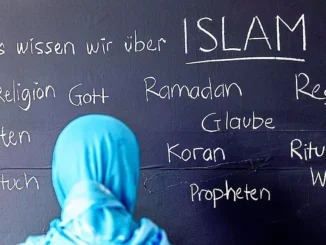 s wissen wir über ISLAM
Religion Gott Ramadan Re
Glaube
ten Koran Ritu
tuch Propheten W